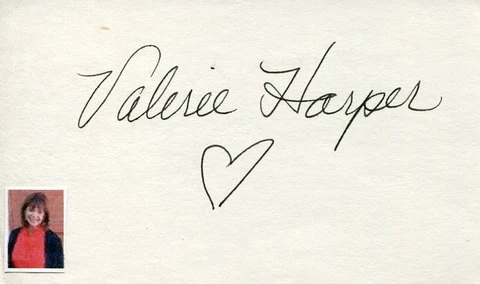 Valerie Harper